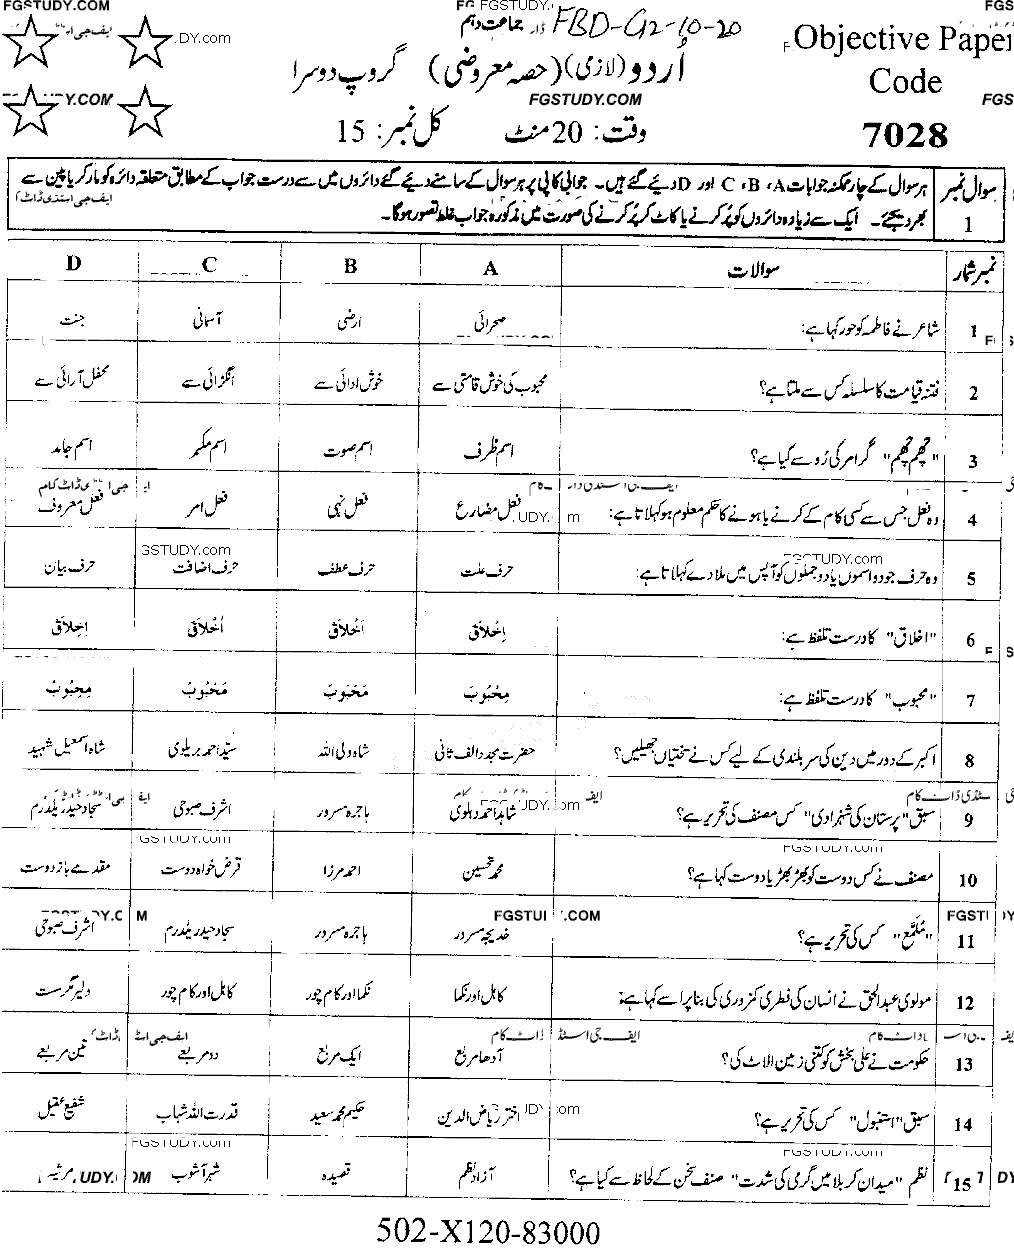 FGSTUDY.COM
جماعت دہم FBD-G2-10-20
Objective Paper
Code
7028
اُردو (لازمی) (حصہ معروضی) گروپ دوسرا
FGSTUDY.COM
وقت: 20 منٹ کل نمبر: 15
سوال نمبر 1
ہر سوال کے چار ممکنہ جوابات A ، B ، C اور D دیئے گئے ہیں۔ جوابی کاپی پر ہر سوال کے سامنے دیئے گئے دائروں میں سے درست جواب کے مطابق متعلقہ دائرہ کو مارکر یا پین سے
بھر دیجئے۔ ایک سے زیادہ دائروں کو پُر کرنے یا کاٹ کر پُر کرنے کی صورت میں مذکورہ جواب غلط تصور ہوگا۔
نمبر شمار سوالات A B C D
1 شاعر نے فاطمہ کو حور کہا ہے: صحرائی ارضی آسمانی جنت
2 فتنہ قیامت کا سلسلہ کس سے ملتا ہے؟ محبوب کی خوش قامتی سے خوش ادائی سے انگڑائی سے محفل آرائی سے
3 "چھم چھم" گرامر کی رُو سے کیا ہے؟ اسم ظرف اسم صوت اسم مکبر اسم جامد
4 وہ فعل جس سے کسی کام کے کرنے یا ہونے کا حکم معلوم ہو کہلاتا ہے: فعل مضارع فعل نہی فعل امر فعل معروف
5 وہ حرف جو دو اسموں یا دو جملوں کو آپس میں ملا دے کہلاتا ہے: حرف علت حرف عطف حرف اضافت حرف بیان
6 "اخلاق" کا درست تلفظ ہے: اِخْلَاق اَخْلَاق اُخْلَاق اِخِلَاق
7 "محبوب" کا درست تلفظ ہے: مِحْبُوبْ مَحَبُوبْ مَحْبُوبْ مِحِبُوبْ
8 اکبر کے دور میں دین کی سربلندی کے لیے کس نے سختیاں جھیلیں؟ حضرت مجدد الف ثانی شاہ ولی اللہ سیّد احمد بریلوی شاہ اسمعیل شہید
9 سبق "پرستان کی شہزادی" کس مصنف کی تحریر ہے؟ شاہد احمد دہلوی ہاجرہ مسرور اشرف صبوحی سجاد حیدر یلدرم
10 مصنف نے کس دوست کو بھڑ بھڑیا دوست کہا ہے؟ محمد تحسین احمد مرزا قرض خواہ دوست مقدمے باز دوست
11 "مُلمّع" کس کی تحریر ہے؟ خدیجہ مسرور ہاجرہ مسرور سجاد حیدر یلدرم اشرف صبوحی
12 مولوی عبدالحق نے انسان کی فطری کمزوری کی بنا پر اسے کہا ہے: کاہل اور نکما نکما اور کام چور کاہل اور کام چور دلیر مگر سست
13 حکومت نے علی بخش کو کتنی زمین الاٹ کی؟ آدھا مربع ایک مربع دو مربعے تین مربعے
14 سبق "استنبول" کس کی تحریر ہے؟ اختر ریاض الدین حکیم محمد سعید قدرت اللہ شہاب شفیع عقیل
15 نظم "میدان کربلا میں گرمی کی شدت" صنف سخن کے لحاظ سے کیا ہے؟ آزاد نظم قصیدہ شہر آشوب مرثیہ
502-X120-83000